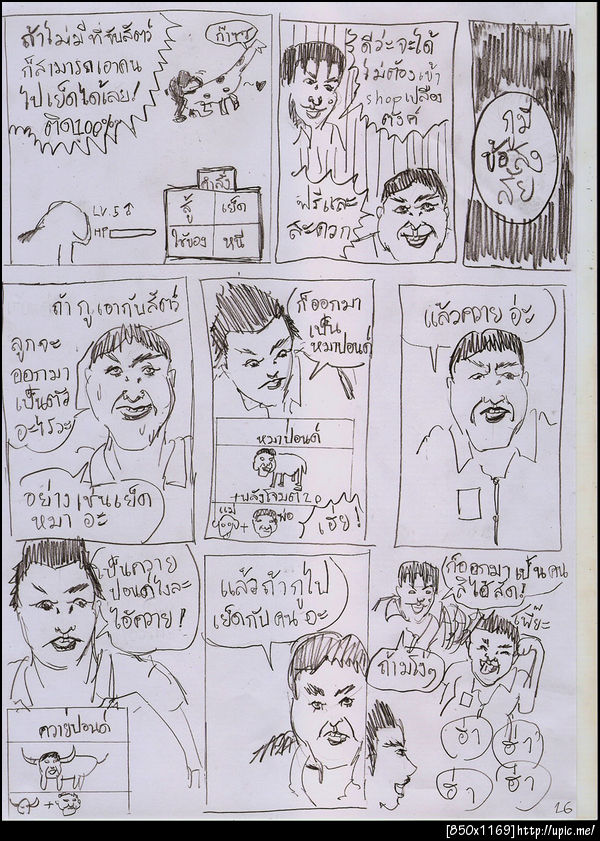 ถ้าไม่มีที่จับสัตว์
ก็สามารถเอาตน
ไปเย็ดได้เลย!
ติด100%
LV.5
HP
คำสั่ง
สู้
เย็ด
ใช้ของ
หนี
ดีว่ะจะได้
ไม่ต้องเข้า
shopเปลือง
ตังค์
ฟรีและ
สะดวก
กูมี
ข้อสง
สัย
ถ้า กู เอากับสัตว์
ลูกจะ
ออกมา
เป็นตัว
อะไรวะ
อย่างเช่นเย็ด
หมา อะ
ก็ออกมา
เป็น
หมาปอนด์
หมาปอนด์
+พลังโจมตี 20
แม่
+
พ่อ
เชี่ย!
แล้วควาย อ่ะ
เป็นควาย
ปอนด์ไงละ
ไอ้ควาย!
ควายปอนด์
+
แล้วถ้ากูไป
เย็ดกับคน อะ
ก็ออกมาเป็นคน
สิไอ้สัด!
เพี๊ยะ
ถามโง่ๆ
ฮ่า
ฮ่า
ฮ่า
ฮ่า
26
[850x1169]http://upic.me/